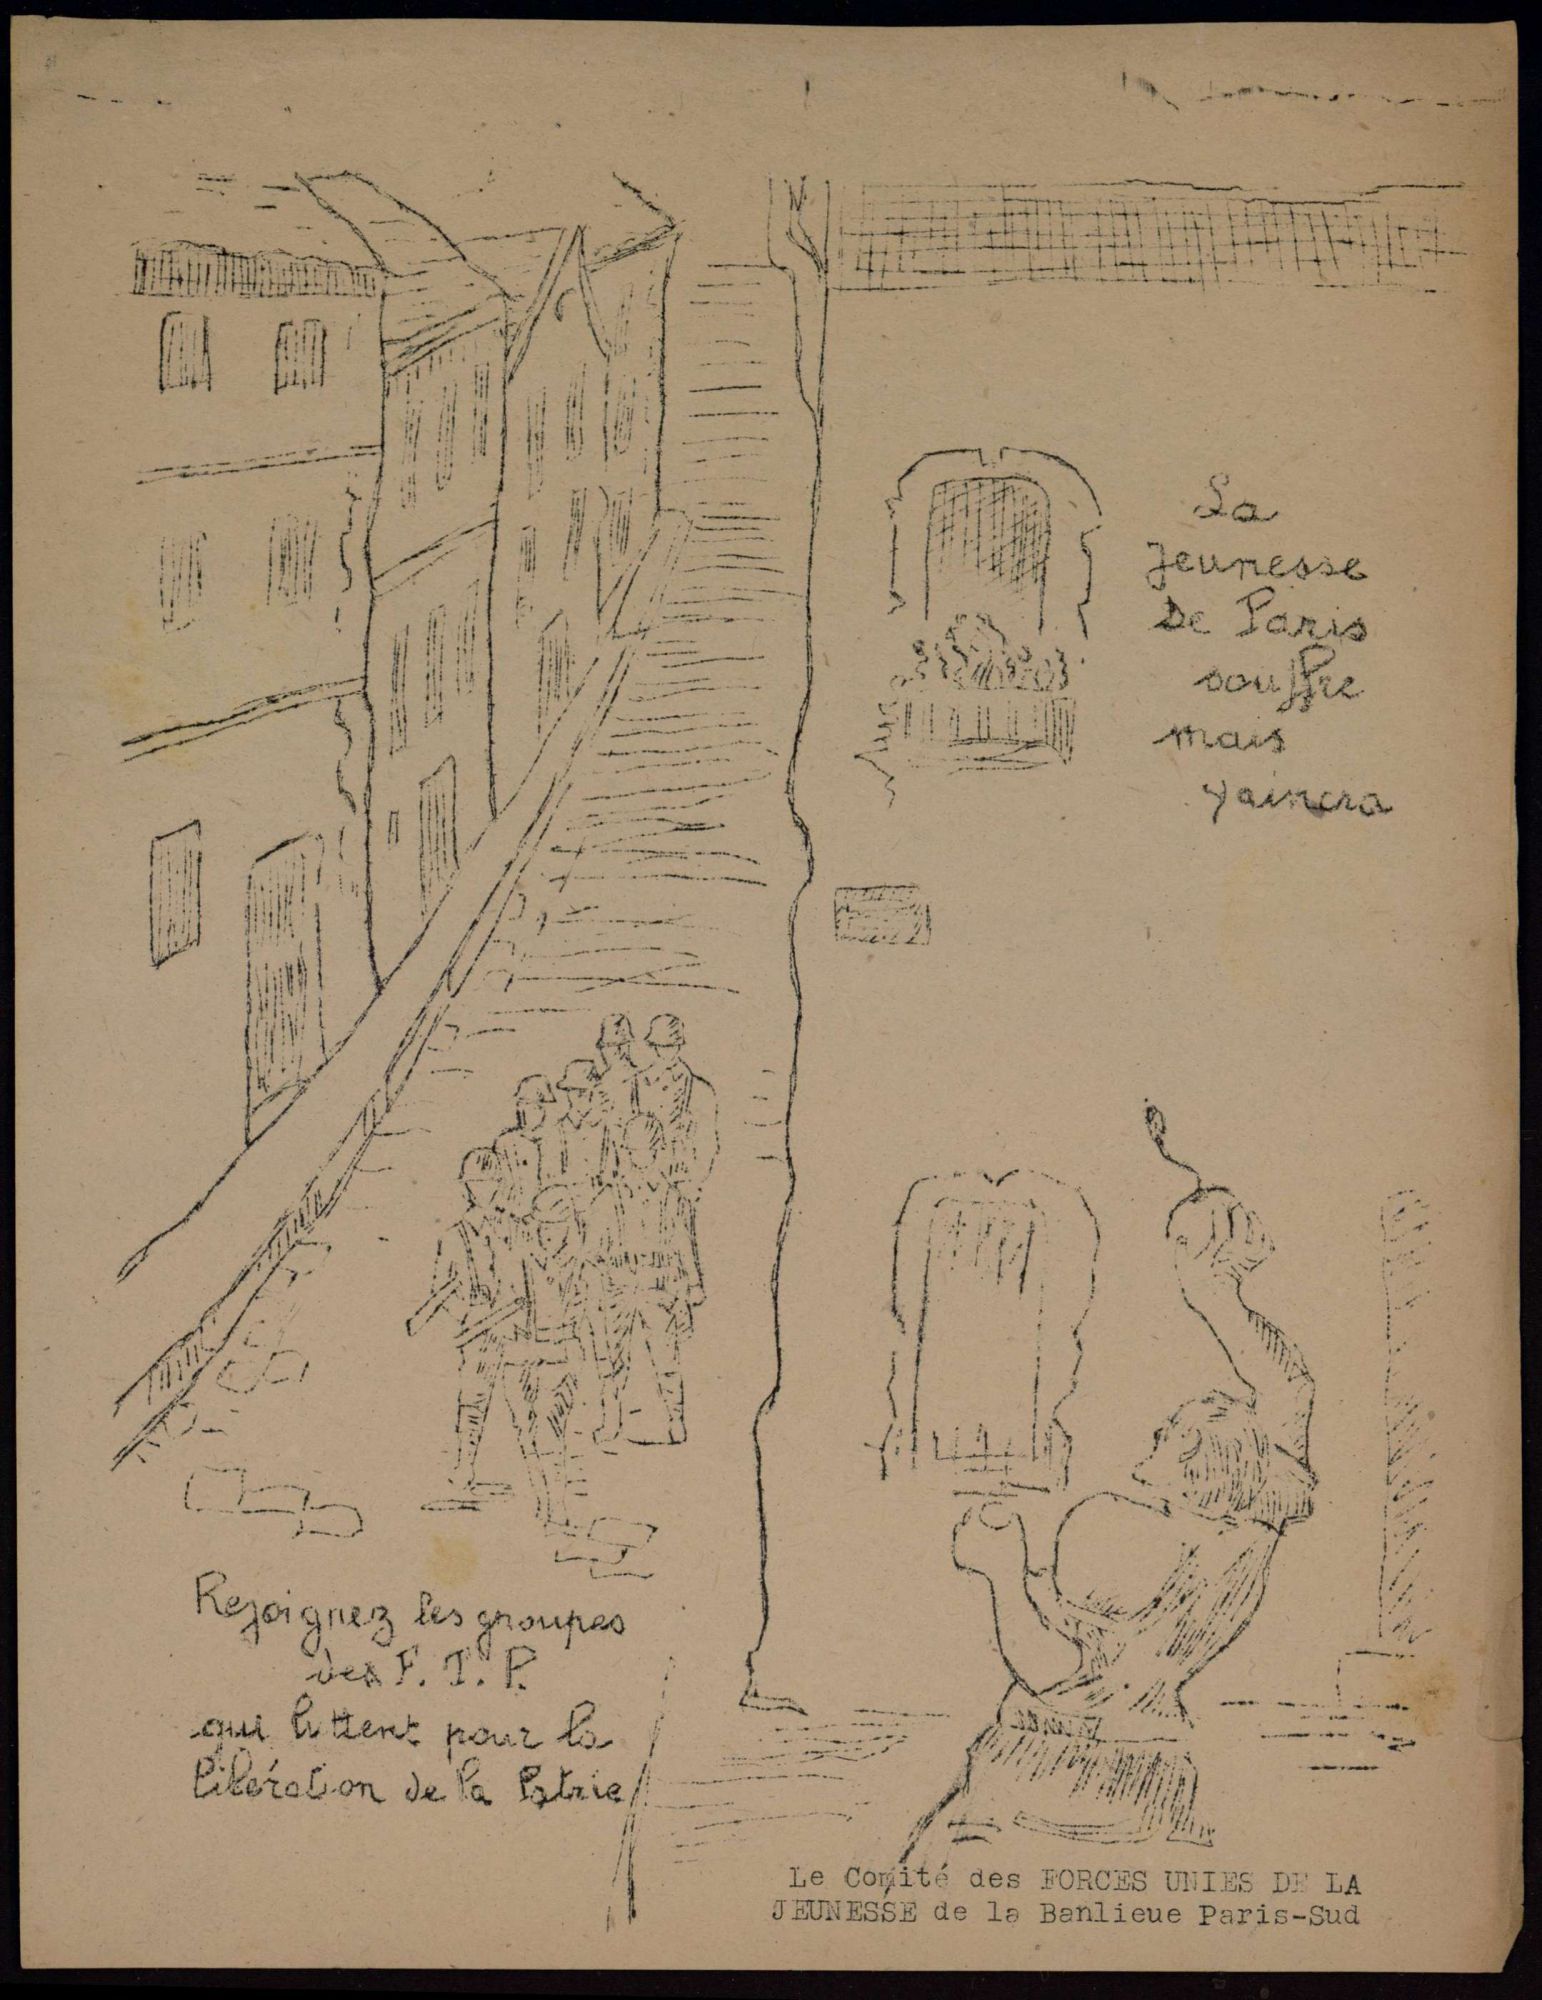 La
Jeunesse
de Paris
souffre
mais
vaincra
Rejoignez les groupes
des F. T. P.
qui luttent pour la
libération de la Patrie
Le Comité des FORCES UNIES DE LA
JEUNESSE de la Banlieue Paris-Sud